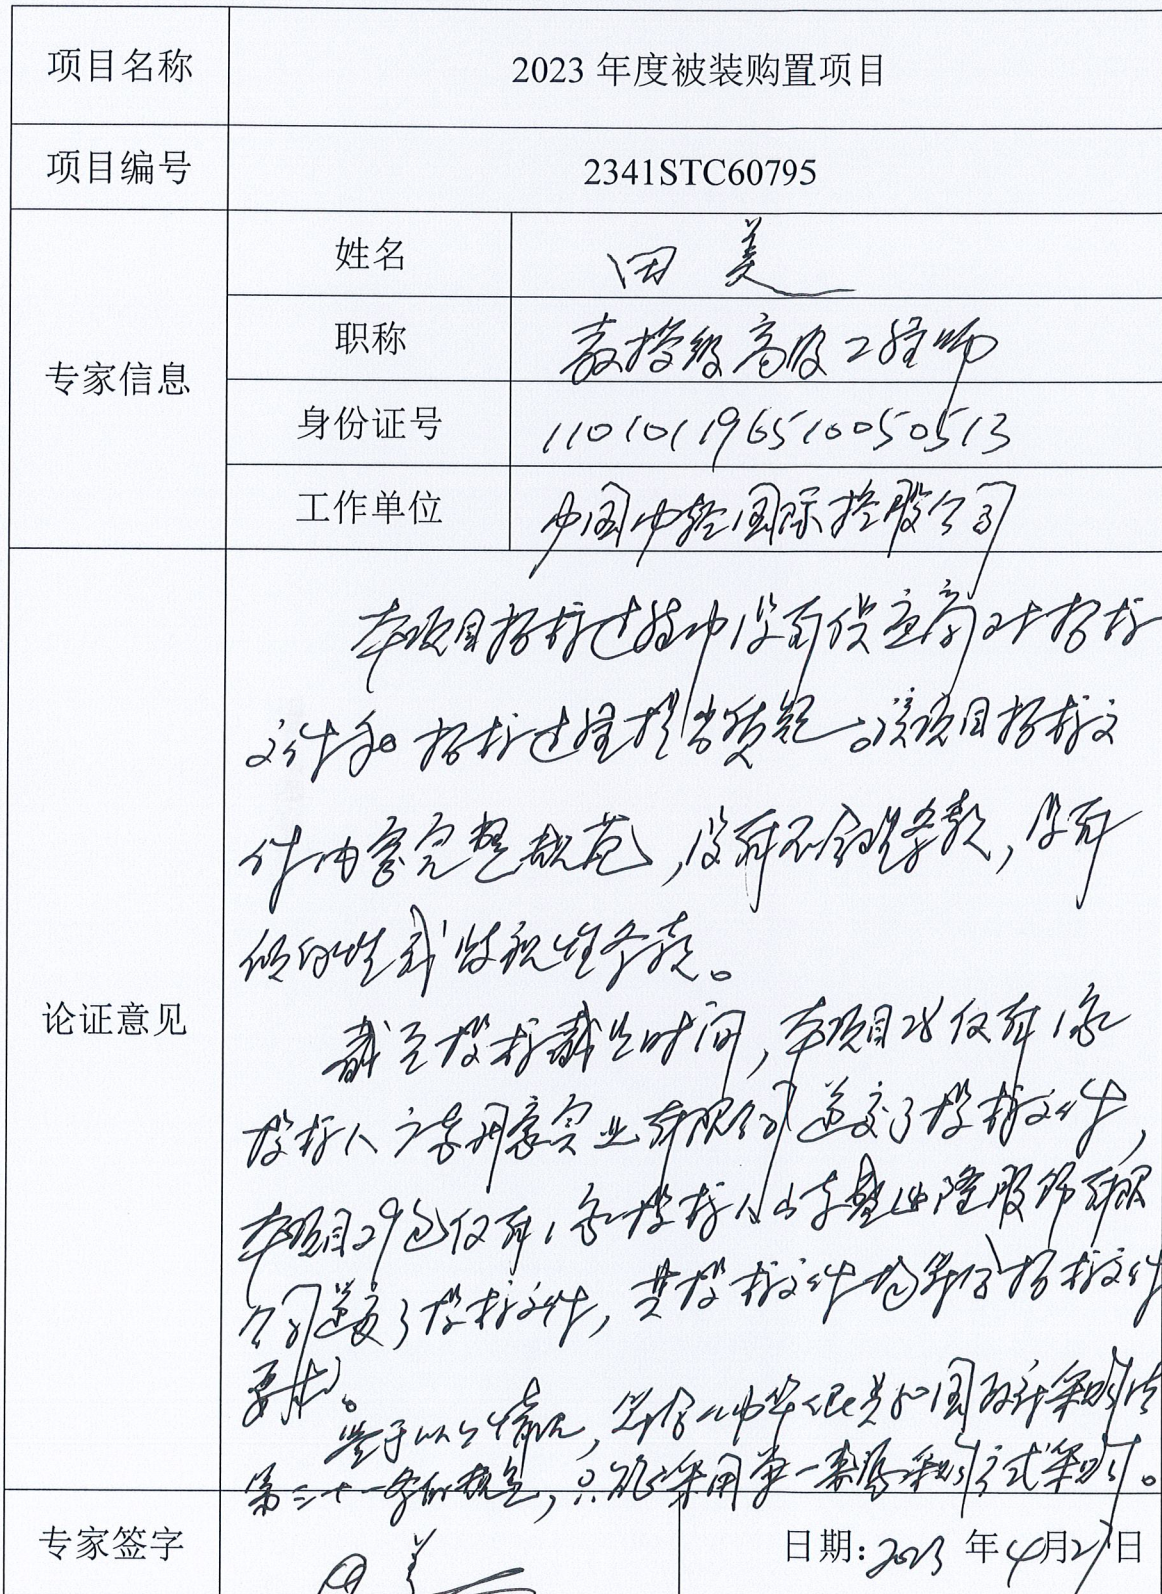 项目名称 2023 年度被装购置项目
项目编号 2341STC60795
专家信息 姓名 田 美
职称 教授级高级工程师
身份证号 110101196510050513
工作单位 中国中轻国际控股公司
论证意见
本项目招标过程中没有供应商对招标
文件和招标过程提出质疑。该项目招标文
件内容完整规范,没有不合理条款,没有
倾向性或歧视性条款。
截至投标截止时间,本项目28仅有1家
投标人 实业有限公司递交了投标文件,
本项目29包仅有1家投标人山东 隆服饰有限
公司递交了投标文件,其投标文件均符合招标文件
要求。
鉴于以上情况,符合《中华人民共和国政府采购法
第三十一条的规定,只能采用单一来源采购方式采购。
专家签字 田 美 日期:2023 年4月21日